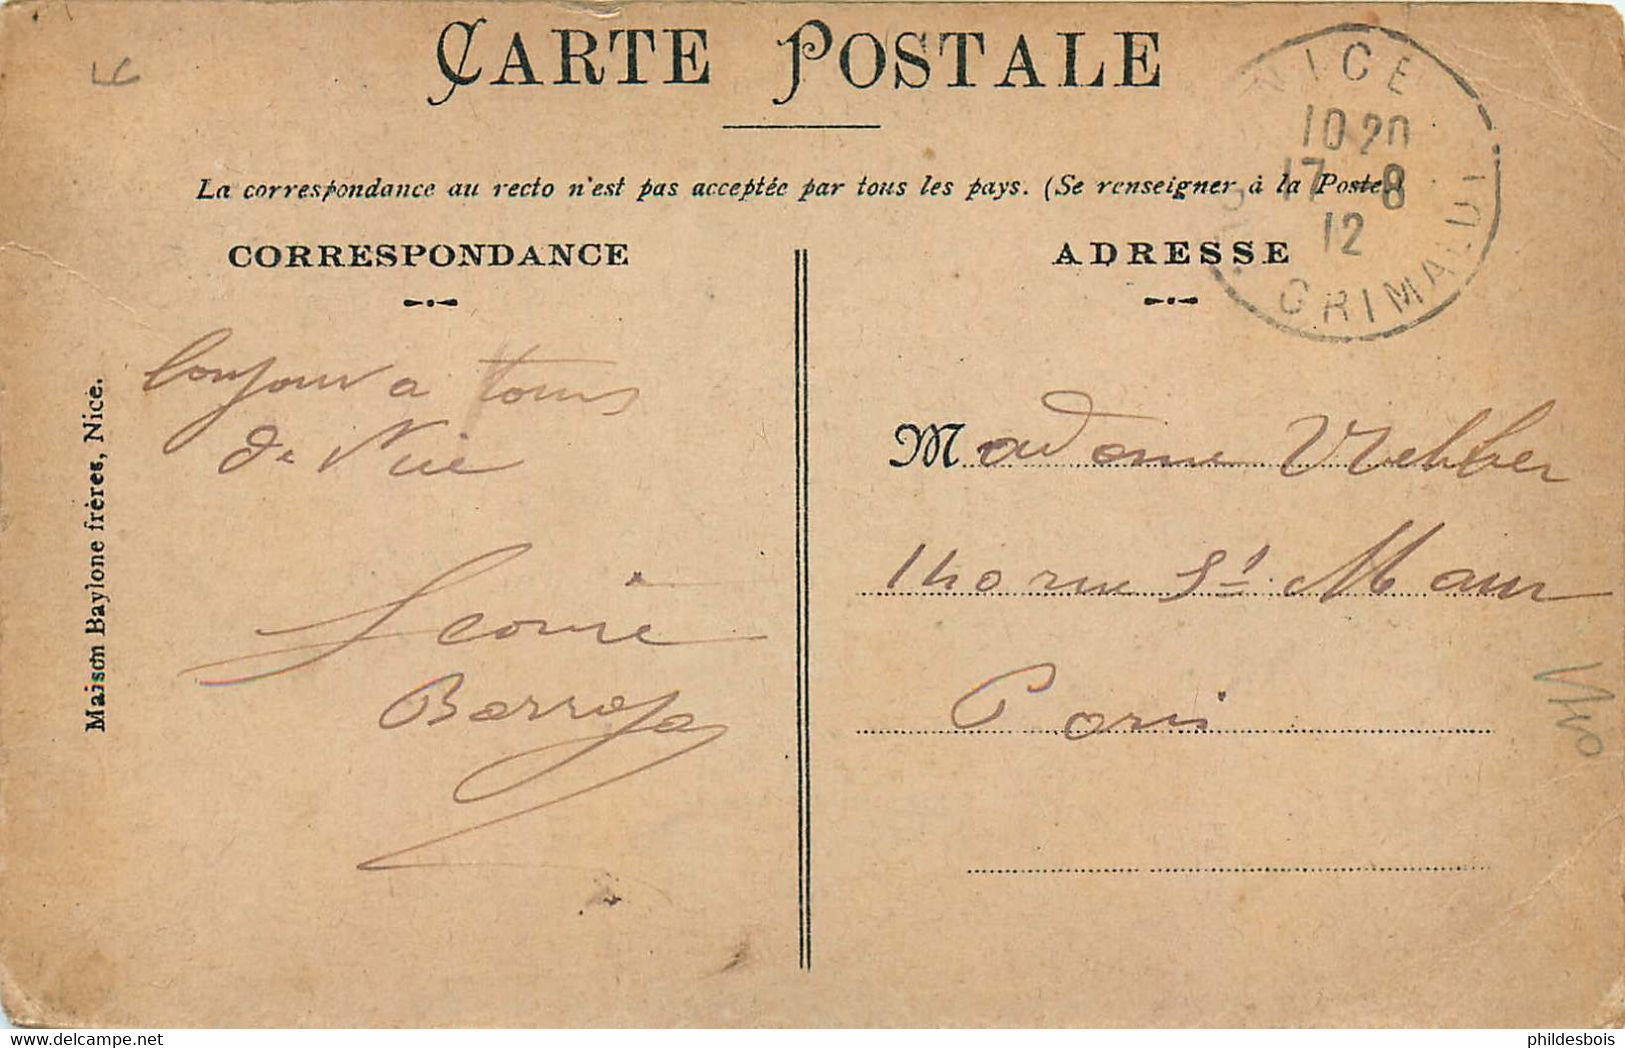 CARTE POSTALE
La correspondance au recto n'est pas acceptée par tous les pays. (Se renseigner à la Poste.)
NICE
10 20
17 - 8
12
GRIMALDI
CORRESPONDANCE
ADRESSE
bonjour a tous
de Nice
Leonie
Madame Webber
140 rue St Maur
Paris
Maison Baylone frères, Nice.
140
delcampe.net
phildesbois